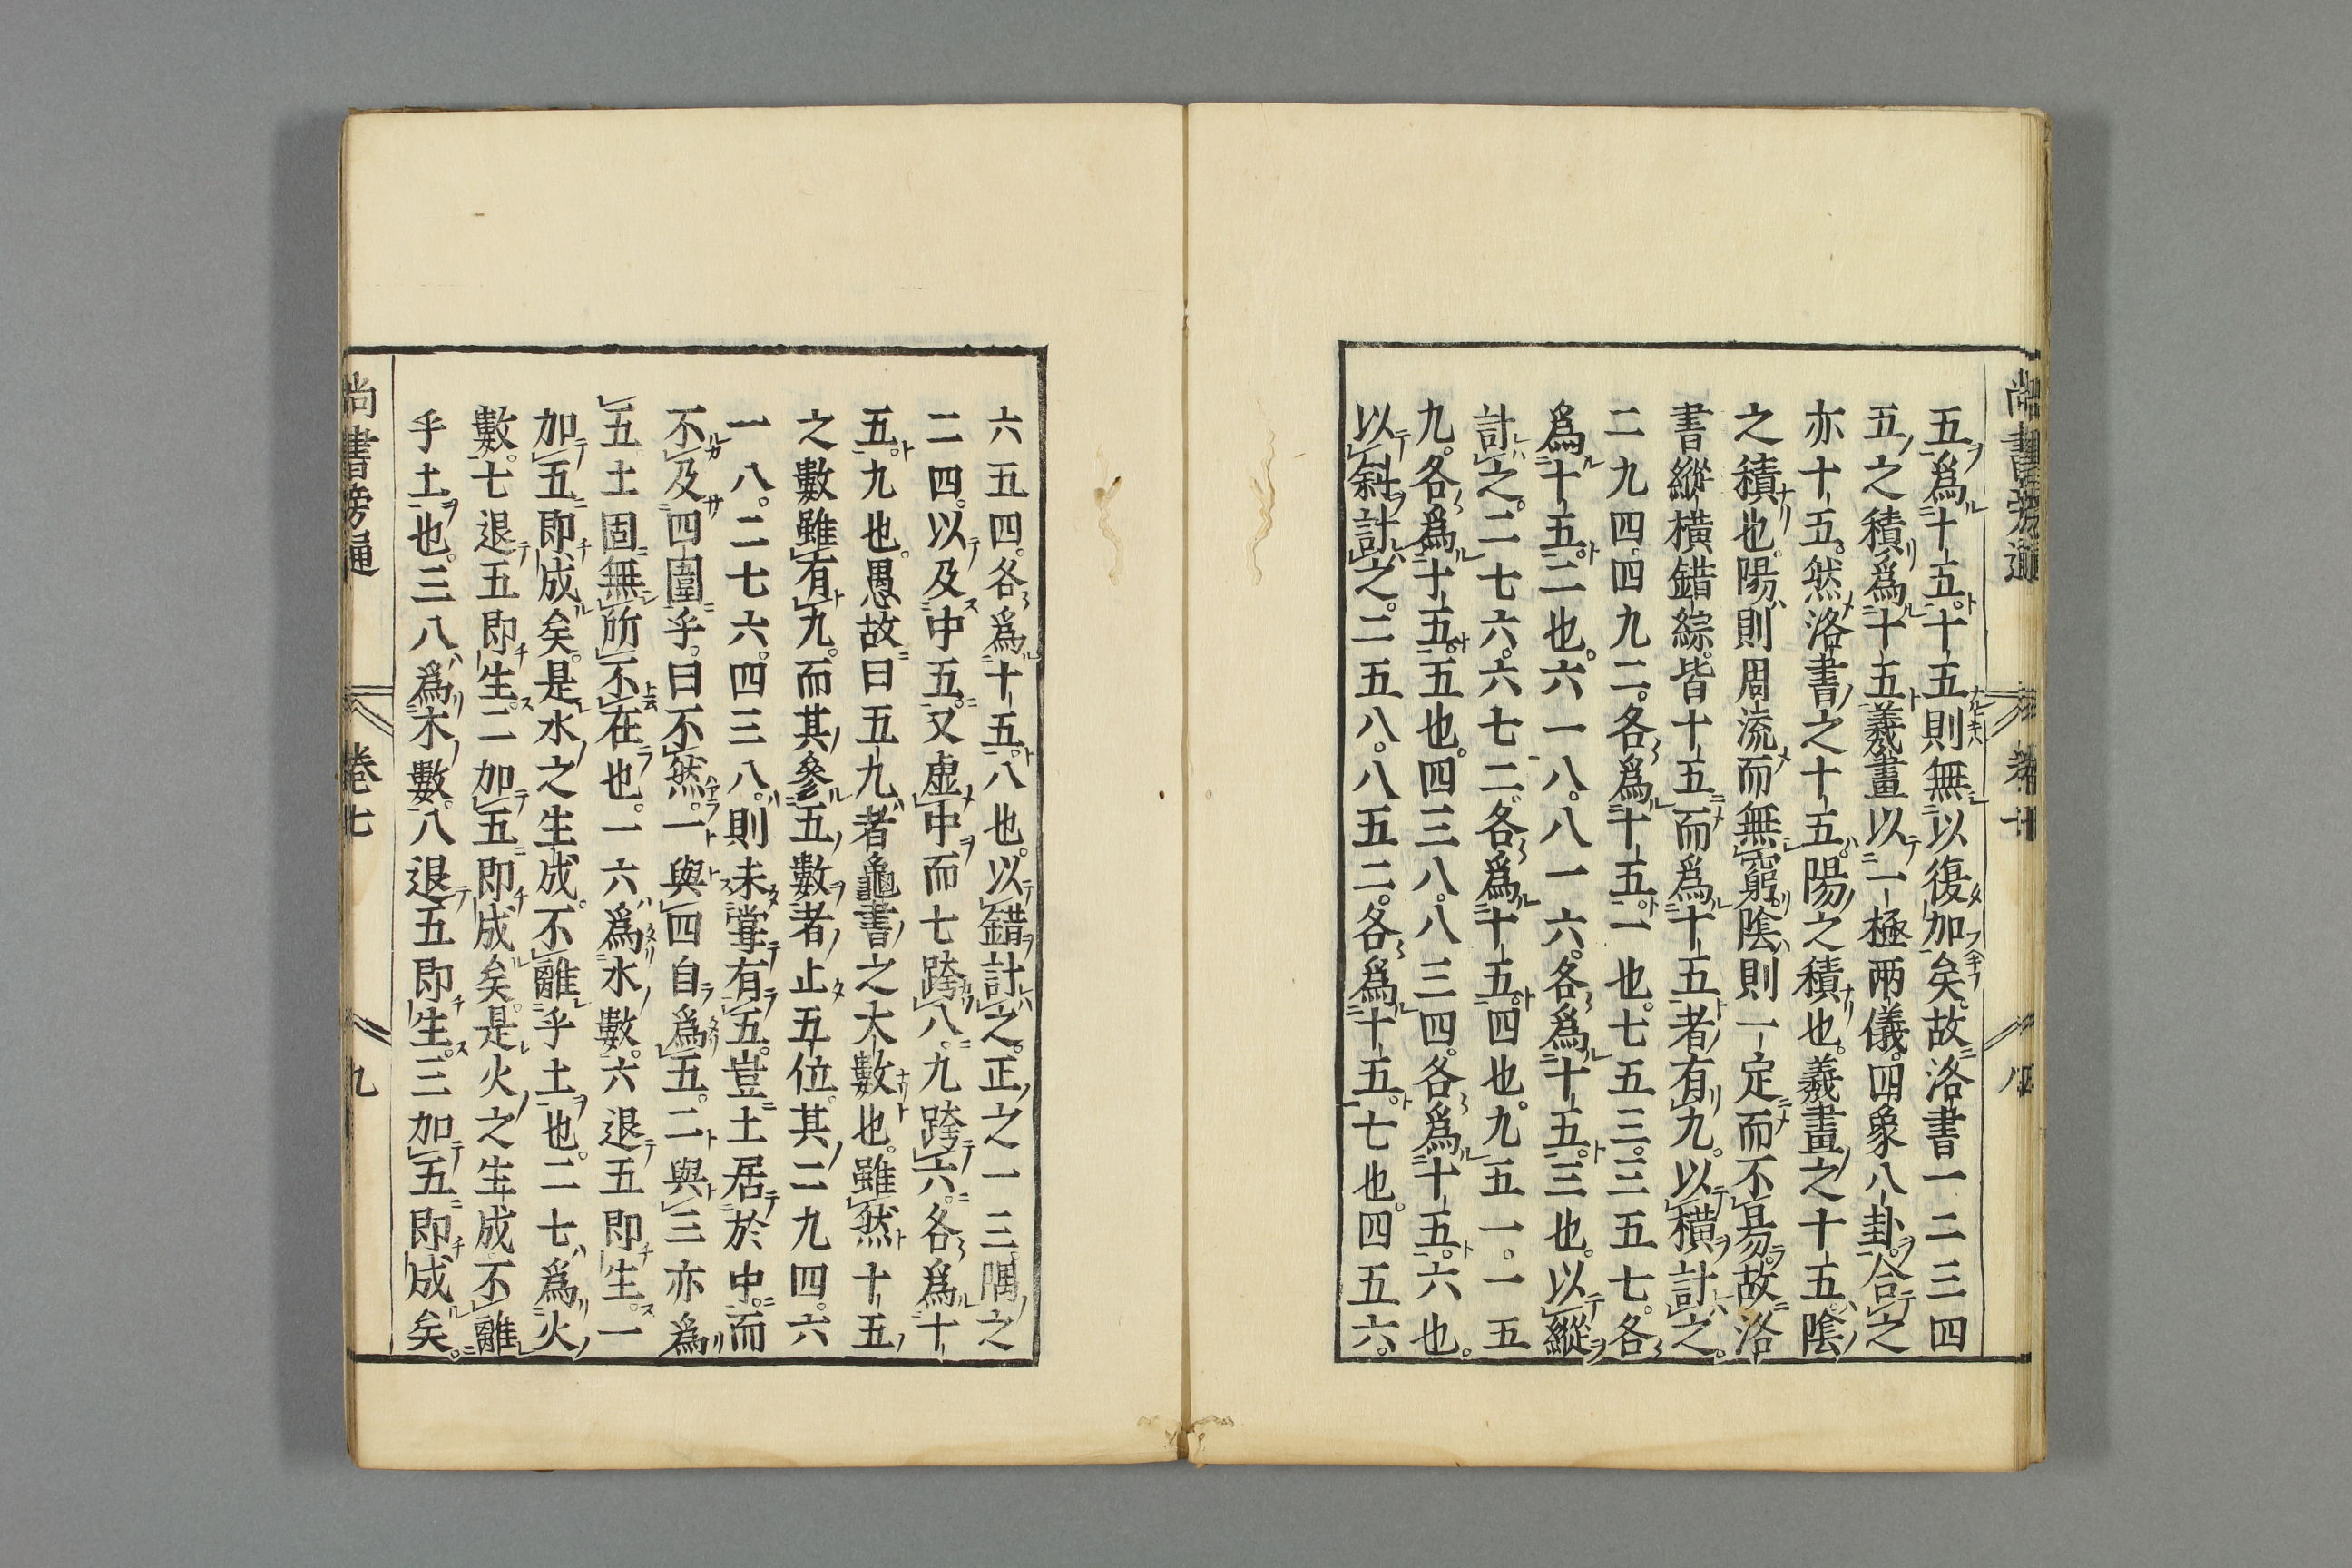 五爲十五十五則無以復加矣故洛書一二三四
五之積爲十五羲畫以一極兩儀四象八卦合之
亦十五然洛書之十五陽之積也羲畫之十五陰
之積也陽則周流而無窮陰則一定而不易故洛
書縱橫錯綜皆十五而爲十五者有九以橫計之
二九四四九二各爲十五一也七五三三五七各
爲十五二也六一八八一六各爲十五三也以縱
計之二七六六七二各爲十五四也九五一一五
九各爲十五五也四三八八三四各爲十五六也
以斜計之二五八八五二各爲十五七也四五六
六五四各爲十五八也以錯計之正之一三隅之
二四以及中五又虛中而七跨八九跨六各爲十
五九也愚故曰五九者龜書之大數也雖然十五
之數雖有九而其參五數者止五位其二九四六
一八二七六四三八則未嘗有五豈土居於中而
不及四圍乎曰不然一與四自爲五二與三亦爲
五土固無所不在也一六爲水數六退五即生一
加五即成矣是水之生成不離乎土也二七爲火
數七退五即生二加五即成矣是火之生成不離
乎土也三八爲木數八退五即生三加五即成矣
尚書旁通 卷七 九